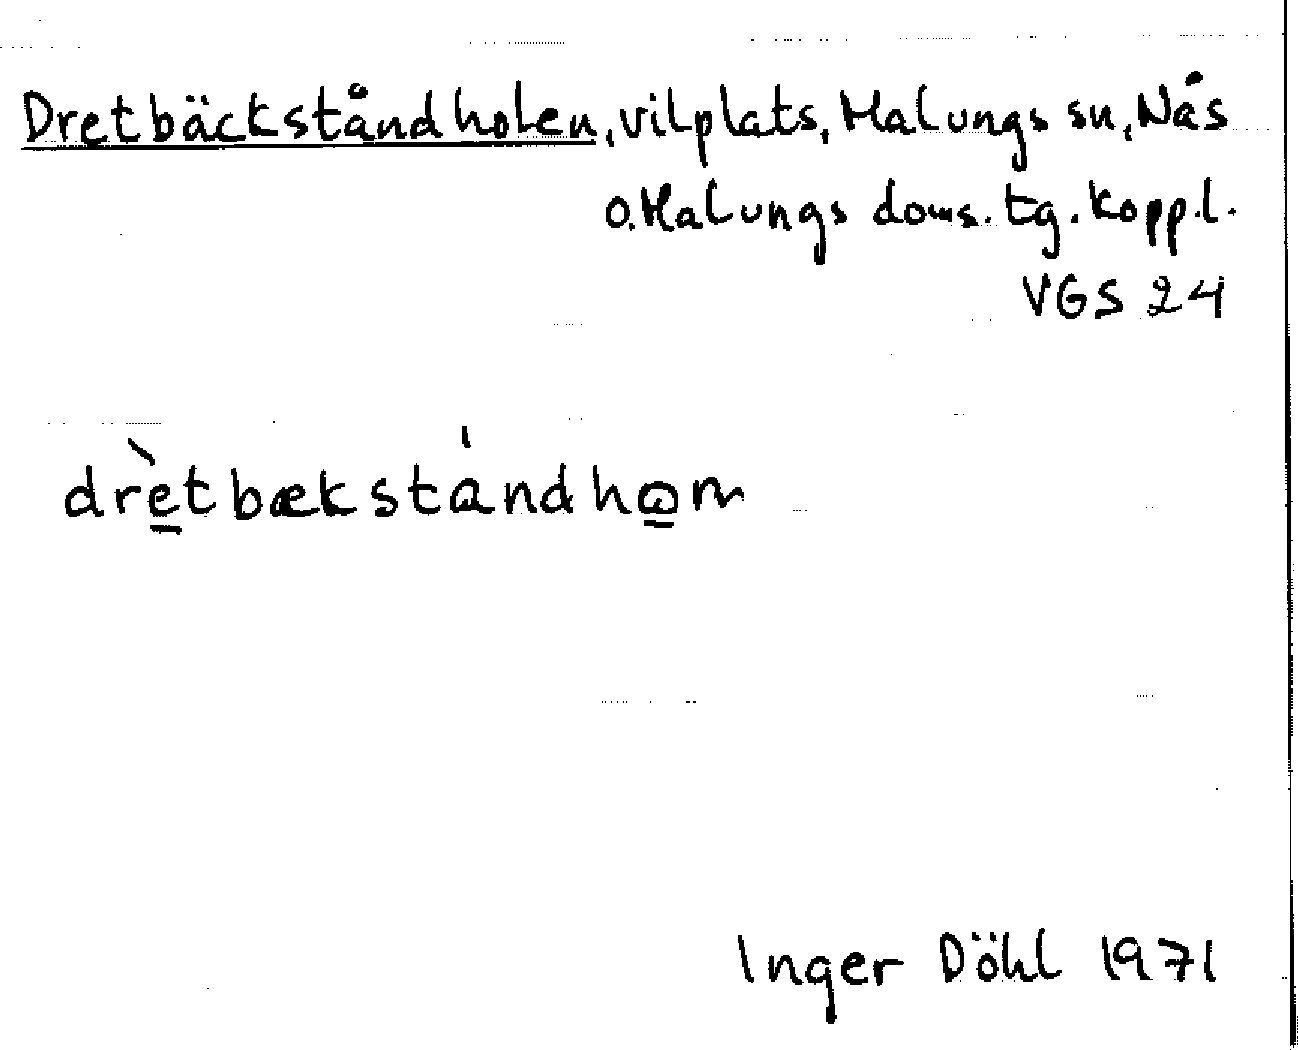 Dretbäckståndholen, vilplats, Malungs sn, Nås
o. Malungs doms. tg. Koppl.
VGS 24
drètbækstándhøm
Inger Döhl 1971